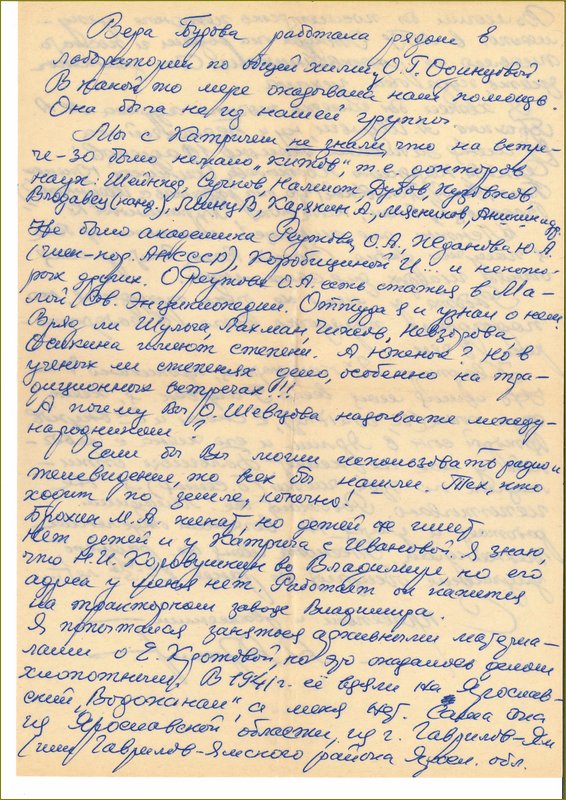 Вера Будова работала рядом в
лаборатории по общей химии у О.Г. Осинцовой.
В какой то мере оказывала нам помощь.
Она была не из нашей группы
Мы с Хатричем не знали что на встре-
че-30 было немало „китов", т.е. докторов
наук: Шейнкер, Налимов,
Мясников, и др.
Не было академика Реутова О.А., Жданова Ю.А.
(член-кор. АН СССР), Коробицыной И... и некото-
рых других. О Реутове О.А. есть статья в Ма-
лой Сов. Энциклопедии. Оттуда я и узнал о нем.
Вряд ли Шулыга, Лахман, Невзорова,
Осикина имеют степени. А Юженые? Но в
ученых ли степенях дело, особенно на тра-
диционных встречах!!!
А почему Вы О. Шевцова называете между-
народником?
Если бы Вы могли использовать радио и
телевидение, то всех бы нашли. Тех, кто
ходит по земле, конечно!
Брохин М.А. женат, но детей не имеет
Нет детей и у Хатрича с Ивановой. Я знаю,
что Н.И. Коровушкин во Владимире но его
адреса у меня нет. Работает он кажется
на тракторном заводе Владимира.
Я пытался заняться архивными материа-
лами о Е. Кротовой, но это оказалось делом
хлопотным. В 1941 г. её взяли на Ярослав-
ский „Водоканал", а меня нет. Сама она
из Ярославской области, из г. Гаврилов-Ям
(или Гаврилов-Ямского района Яросл. обл.